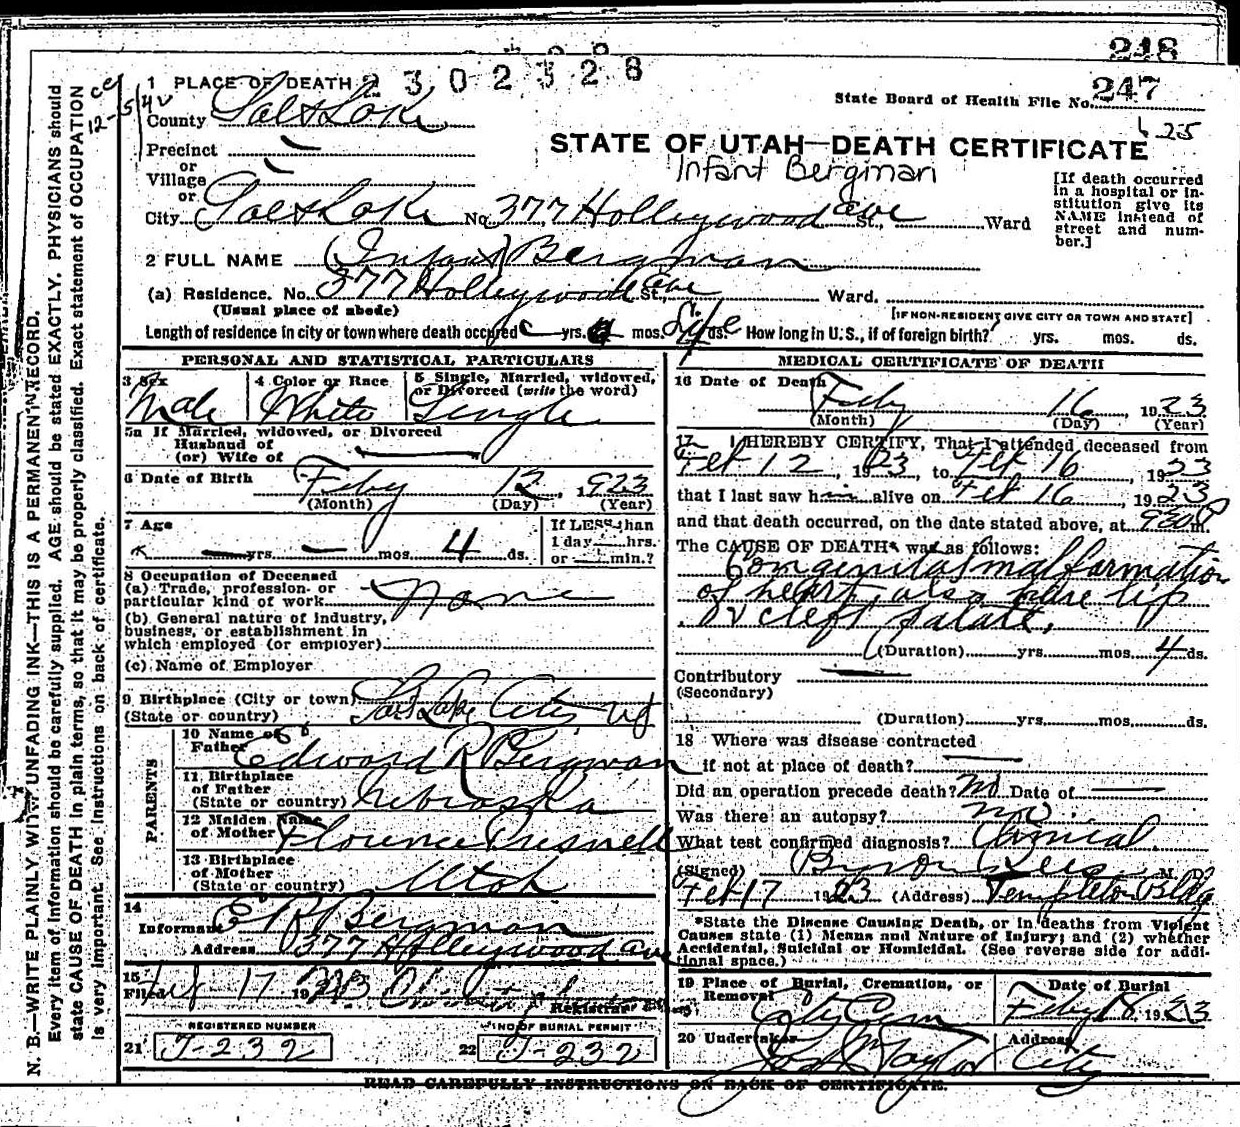 248
1 PLACE OF DEATH 2302328
247
State Board of Health File No.
County Salt Lake
STATE OF UTAH—DEATH CERTIFICATE
Infant Bergman
Precinct
or
Village
or
City Salt Lake No. 377 Holleywood ave St., Ward
[If death occurred in a hospital or institution give its NAME instead of street and number.]
2 FULL NAME (Infant) Bergman
(a) Residence. No. 377 Holleywood ave St., Ward.
(Usual place of abode)
[IF NON-RESIDENT GIVE CITY OR TOWN AND STATE]
Length of residence in city or town where death occured yrs. mos. ds. How long in U.S., if of foreign birth? yrs. mos. ds.
PERSONAL AND STATISTICAL PARTICULARS
3 Sex Male
4 Color or Race White
5 Single, Married, widowed, or Divorced (write the word) Single
5a If Married, widowed, or Divorced
Husband of
(or) Wife of
6 Date of Birth Feby 12, 1923
(Month) (Day) (Year)
7 Age — yrs. — mos. 4 ds.
If LESS than 1 day — hrs. or — min.?
8 Occupation of Deceased
(a) Trade, profession or particular kind of work None
(b) General nature of industry, business, or establishment in which employed (or employer)
(c) Name of Employer
9 Birthplace (City or town) Salt Lake City Ut
(State or country)
PARENTS
10 Name of Father Edward R Bergman
11 Birthplace of Father (State or country) Nebraska
12 Maiden Name of Mother Florence Presnell
13 Birthplace of Mother (State or country) Utah
14
Informant E R Bergman
Address 377 Holleywood ave
15
Filed Feb 17 1923 Registrar
REGISTERED NUMBER
21 J-232
NO OF BURIAL PERMIT
22 J-232
MEDICAL CERTIFICATE OF DEATH
16 Date of Death Feby 16, 1923
(Month) (Day) (Year)
17 I HEREBY CERTIFY, That I attended deceased from
Feb 12, 1923 to Feb 16 1923
that I last saw h alive on Feb 16 1923
and that death occurred, on the date stated above, at 930 P m.
The CAUSE OF DEATH* was as follows:
Congenital malformation
of heart, also hare lip
& cleft palate.
(Duration) yrs. mos. 4 ds.
Contributory
(Secondary)
(Duration) yrs. mos. ds.
18 Where was disease contracted
if not at place of death?
Did an operation precede death? no Date of
Was there an autopsy? no
What test confirmed diagnosis? Clinical
(Signed) Byron Rees M. D.
Feb 17 1923 (Address) Templeton Bldg
*State the Disease Causing Death, or in deaths from Violent
Causes state (1) Means and Nature of Injury; and (2) whether
Accidental, Suicidal or Homicidal. (See reverse side for additional space.)
19 Place of Burial, Cremation, or Removal City Cem
Date of Burial Feby 18, 1923
20 Undertaker Jos Wm Taylor
Address City
READ CAREFULLY INSTRUCTIONS ON BACK OF CERTIFICATE.
N. B.—WRITE PLAINLY WITH UNFADING INK—THIS IS A PERMANENT RECORD.
Every item of information should be carefully supplied. AGE should be stated EXACTLY. PHYSICIANS should
state CAUSE OF DEATH in plain terms, so that it may be properly classified. Exact statement of OCCUPATION
is very important. See instructions on back of certificate.